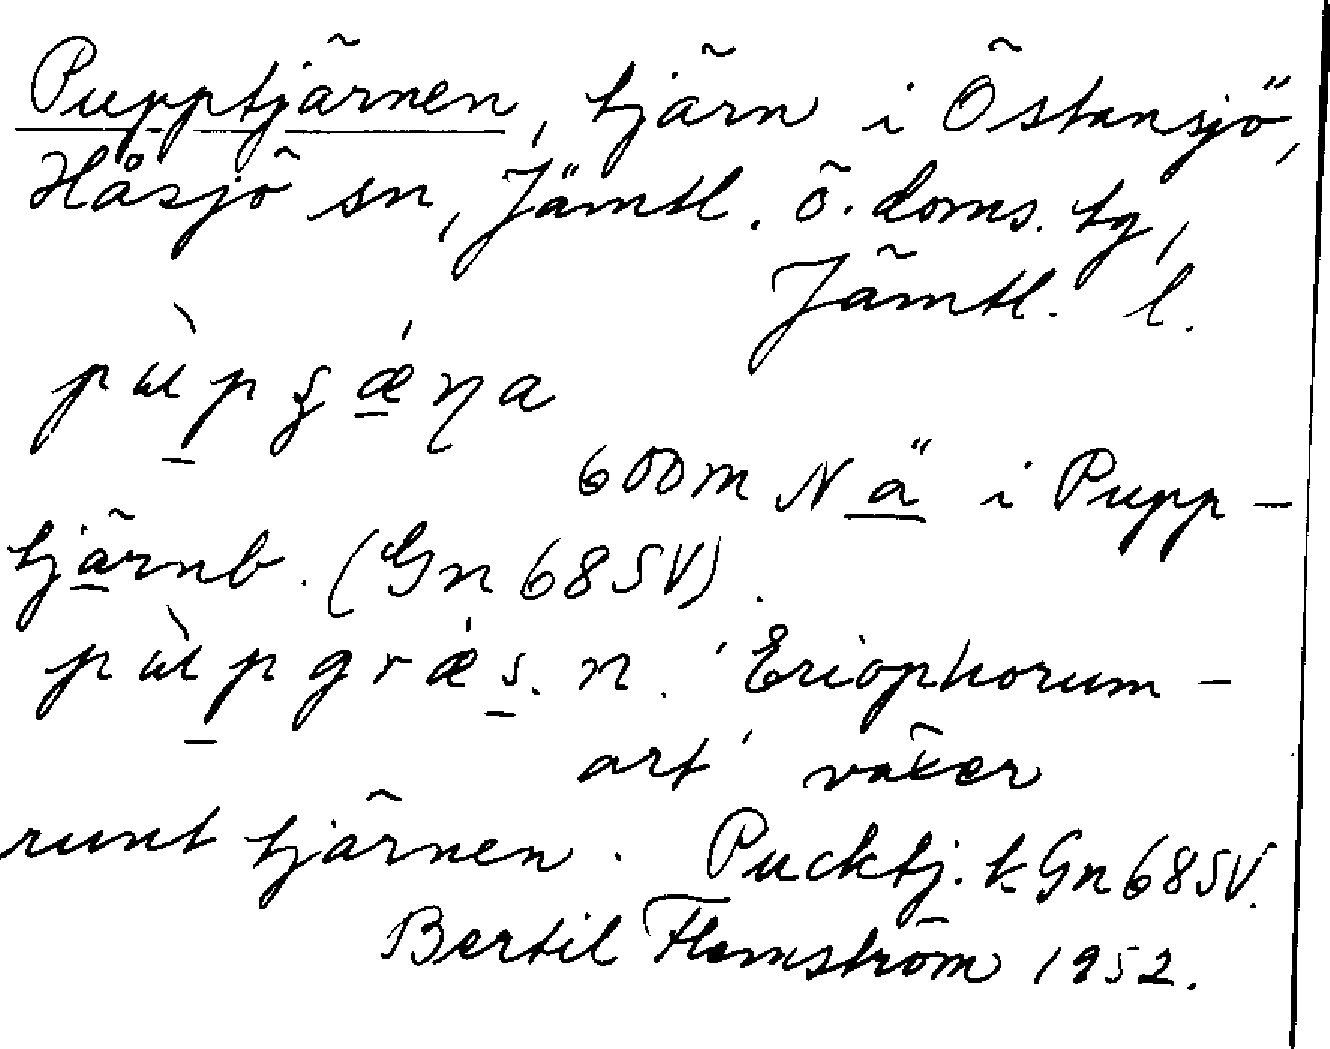 Pupptjärnen, tjärn i Östansjö,
Håsjö sn, Jämtl. ö. doms. tg,
Jämtl. l.
600 m N ä i Pupp-
tjärnb. (Gn 68 SV).
n. 'Eriophorum-
art' växer
runt tjärnen. Pucktj. k Gn 68 SV.
Bertil Flemström 1952.